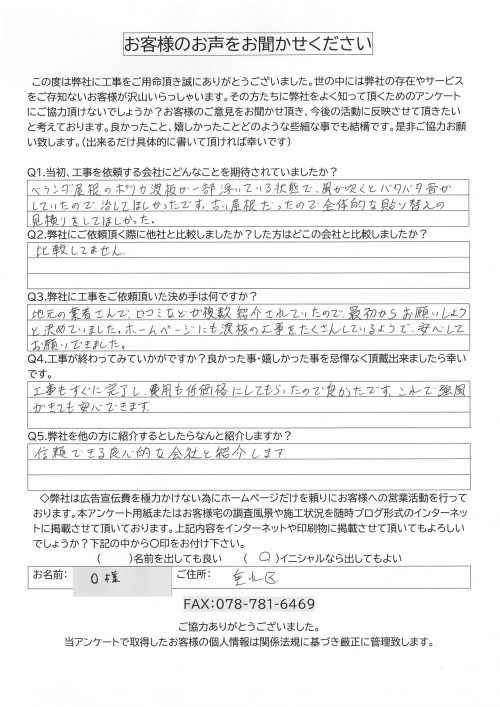 お客様のお声をお聞かせください
この度は弊社に工事をご用命頂き誠にありがとうございました。世の中には弊社の存在やサービス
をご存知ないお客様が沢山いらっしゃいます。その方たちに弊社をよく知って頂くためのアンケート
にご協力頂けないでしょうか？お客様のご意見をお聞かせ頂き、今後の活動に反映させて頂きたい
と考えております。良かったこと、嬉しかったことどのような些細な事でも結構です。是非ご協力お願
い致します。（出来るだけ具体的に書いて頂ければ幸いです）
Q1.当初、工事を依頼する会社にどんなことを期待されていましたか？
ベランダ屋根のポリカ波板が一部浮いている状態で、風が吹くとバタバタ音が
していたので、治してほしかったです。古い屋根だったので全体的な貼り替えの
見積りをしてほしかった。
Q2.弊社にご依頼頂く際に他社と比較しましたか？した方はどこの会社と比較しましたか？
比較してません。
Q3.弊社に工事をご依頼頂いた決め手は何ですか？
地元の業者さんで、口コミなどが複数紹介されていたので、最初からお願いしよう
と決めていました。ホームページにも波板の工事をたくさんしているようで、安心して
お願いできました。
Q4.工事が終わってみていかがですか？良かった事・嬉しかった事を忌憚なく頂戴出来ましたら幸い
です。
工事もすぐに完了し、費用も低価格にしてもらったので良かったです。これで強風
がきても安心できます。
Q5.弊社を他の方に紹介するとしたらなんと紹介しますか？
信頼できる良心的な会社と紹介します
◇弊社は広告宣伝費を極力かけない為にホームページだけを頼りにお客様への営業活動を行って
おります。本アンケート用紙またはお客様宅の調査風景や施工状況を随時ブログ形式のインターネッ
トに掲載させて頂いております。上記内容をインターネットや印刷物に掲載させて頂いてもよろしい
でしょうか？下記の中から○印をお付け下さい。
（　　）名前を出しても良い　（ ○ ）イニシャルなら出してもよい
お名前： O様 ご住所： 垂水区
FAX:078-781-6469
ご協力ありがとうございました。
当アンケートで取得したお客様の個人情報は関係法規に基づき厳正に管理致します。